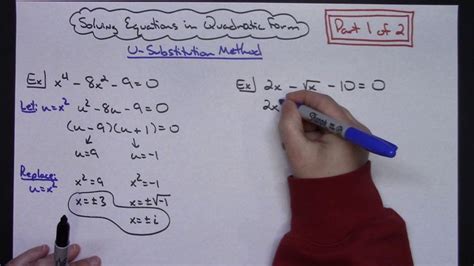 Solving Equations in Quadratic Form
Part 1 of 2
U-Substitution Method
Ex) x⁴ - 8x² - 9 = 0
Let: u = x² u² - 8u - 9 = 0
(u - 9)(u + 1) = 0
↓ ↓
u = 9 u = -1
Replace: x² = 9 x² = -1
u = x²
x = ±3 x = ±√-1
x = ± i
Ex) 2x - √x - 10 = 0
2x